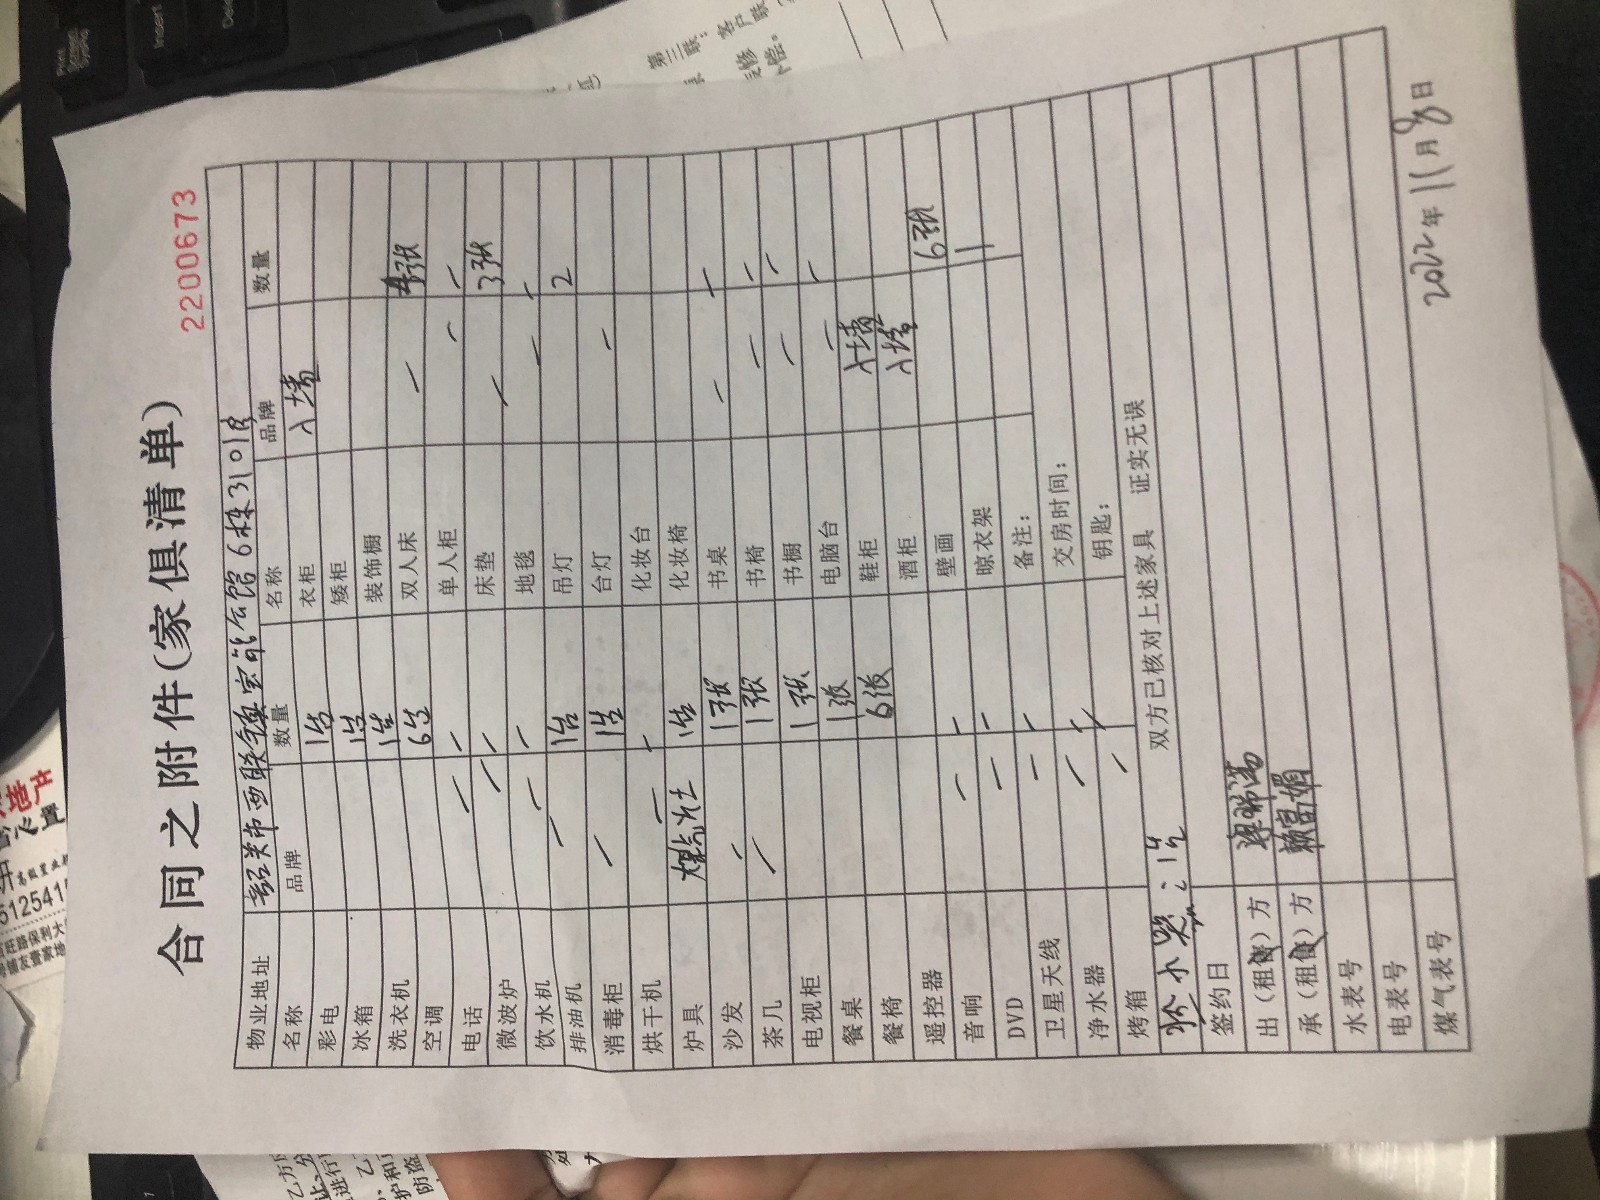 合同之附件(家俱清单)
2200673
物业地址 韶关市西联镇宝能公馆6栋3101房
名称 品牌 数量 名称 品牌 数量
彩电 1台 衣柜 入墙
冰箱 1台 矮柜
洗衣机 1台 装饰橱
空调 6台 双人床 张
电话 单人柜
微波炉 床垫 3张
饮水机 地毯
排油机 1台 吊灯 2
消毒柜 1台 台灯
烘干机 化妆台
炉具 煤气灶 1台 化妆椅
沙发 1张 书桌
茶几 1张 书椅
电视柜 1张 书橱
餐桌 1张 电脑台
餐椅 6张 鞋柜 入墙
遥控器 酒柜 入墙
音响 壁画 6张
DVD 晾衣架 1
卫星天线 备注:
净水器 交房时间:
烤箱 钥匙:
双方已核对上述家具 证实无误
签约日
出(租售)方
承(租售)方
水表号
电表号
煤气表号
2022年11月8日
第三联:客户联
地产
心置
高级置业
512541
旺路保利大
铺友壹家地
Insert